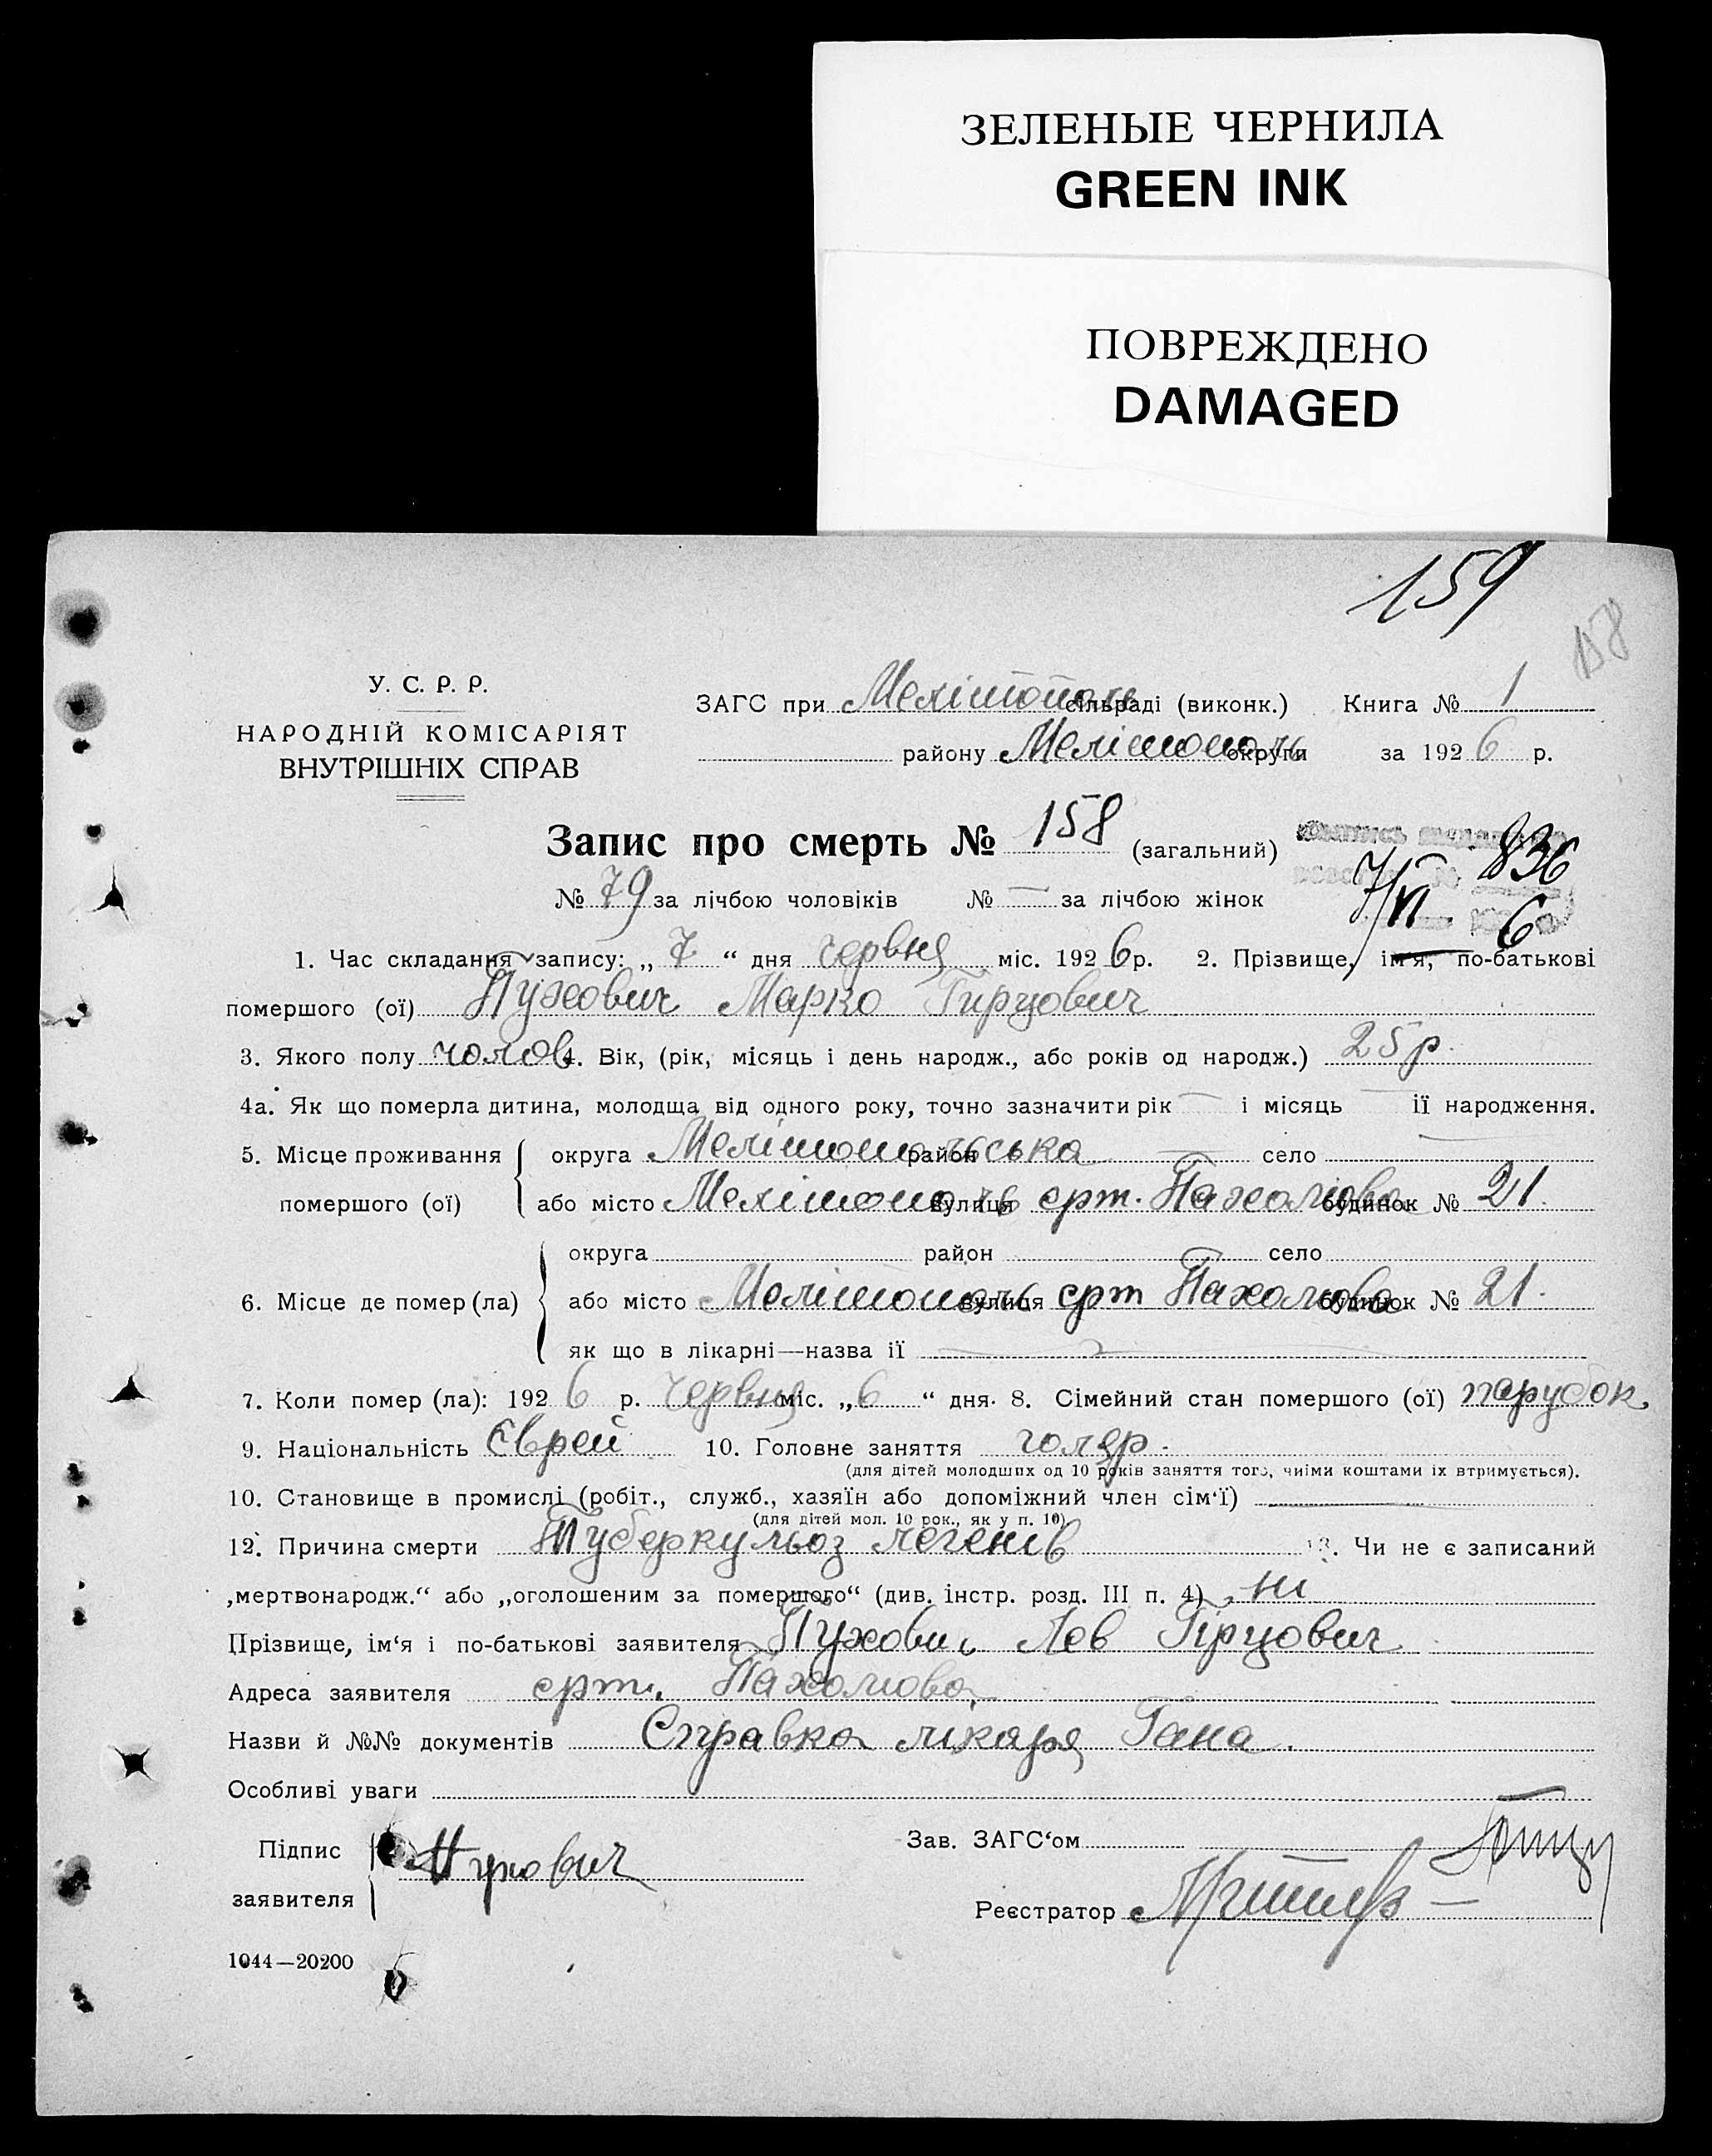 ЗЕЛЕНЫЕ ЧЕРНИЛА
GREEN INK
ПОВРЕЖДЕНО
DAMAGED
159
158
У. С. Р. Р.
НАРОДНІЙ КОМІСАРІЯТ
ВНУТРІШНІХ СПРАВ
ЗАГС при Мелітополь сільраді (виконк.) Книга № 1
району Мелітополь округи за 1926 р.
Запис про смерть № 158 (загальний)
836
7/VI 6
№ 79 за лічбою чоловіків № — за лічбою жінок
1. Час складання запису: „ 7 “ дня червня міс. 1926 р. 2. Прізвище, ім'я, по-батькові
помершого (ої) Пухович Марко Гирцович
3. Якого полу чолов. 4. Вік, (рік, місяць і день народж., або років од народж.) 25 р.
4а. Як що померла дитина, молодща від одного року, точно зазначити рік — і місяць — її народження.
5. Місце проживання округа Мелітопольська район — село —
помершого (ої) або місто Мелітополь вулиця срт. Пахолкова будинок № 21.
округа район село
6. Місце де помер (ла) або місто Мелітополь вулиця срт Пахолкова будинок № 21.
як що в лікарні—назва ії —
7. Коли помер (ла): 1926 р. червня міс. „ 6 “ дня. 8. Сімейний стан помершого (ої) парубок
9. Національність Єврей 10. Головне заняття голяр.
(для дітей молодших од 10 років заняття того, чиїми коштами їх втримується).
10. Становище в промислі (робіт., служб., хазяїн або допоміжний член сім‘ї) —
(для дітей мол. 10 рок., як у п. 10).
12. Причина смерти Туберкульоз легенів 13. Чи не є записаний
„мертвонародж.“ або „оголошеним за помершого“ (див. інстр. розд. III п. 4) ні
Прізвище, ім‘я і по-батькові заявителя Пухович Лев Гірцович
Адреса заявителя срт. Пахолкова
Назви й №№ документів Справка лікаря Гана.
Особливі уваги
Підпис заявителя Пухович
Зав. ЗАГС‘ом
Реєстратор
1044—20200